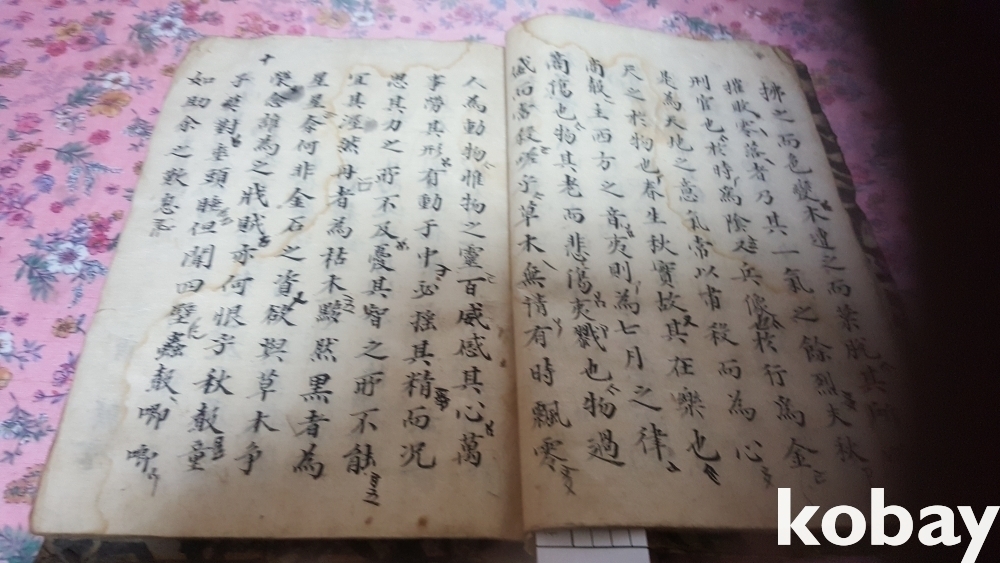 拂之而色變木遭之而葉脫其所
摧敗零落者乃其一氣之餘烈夫秋
刑官也於時爲陰又兵像於行爲金
是爲天地之意氣常以肅殺而爲心
天之於物也春生秋實故其在樂也
商聲主西方之音夷則爲七月之律
商傷也物其老而悲傷夷戮也物過
盛而當殺嗟乎草木無情有時飄零
人為動物惟物之靈百感感其心萬
事勞其形有動于中必搖其精而況
思其力之所不及憂其智之所不能
宜其渥然丹者為枯木黟然黑者為
星星奈何非金石之質欲與草木爭
榮念誰為之戕賊亦何恨乎秋聲童
子莫對垂頭睡但聞四壁蟲聲唧唧
如助余之歎息
kobay